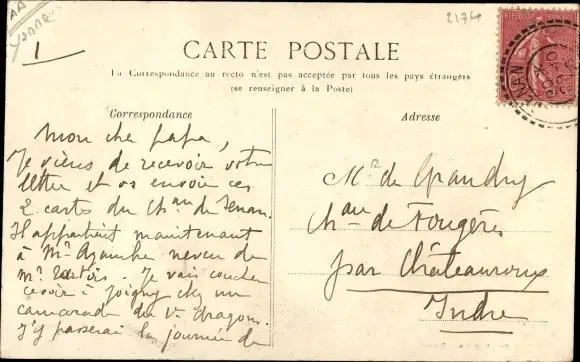 AA
YONNE
1
2174
RÉPUBLIQUE FRANÇAISE
CARTE POSTALE
La Correspondance au recto n'est pas acceptée par tous les pays étrangers
(se renseigner à la Poste)
Correspondance
Mon che papa,
Je viens de recevoir votre
lettre et vs envoie ces
2 cartes du Chau de
Il appartient maintenant
à Mr neveu de
Mr. Je vais coucher
ce soir à Joigny chez un
camarade du Ve dragons.
J'y passerai la journée de
Adresse
Mr de Grandry
Chau de Fougères
par Châteauroux
Indre